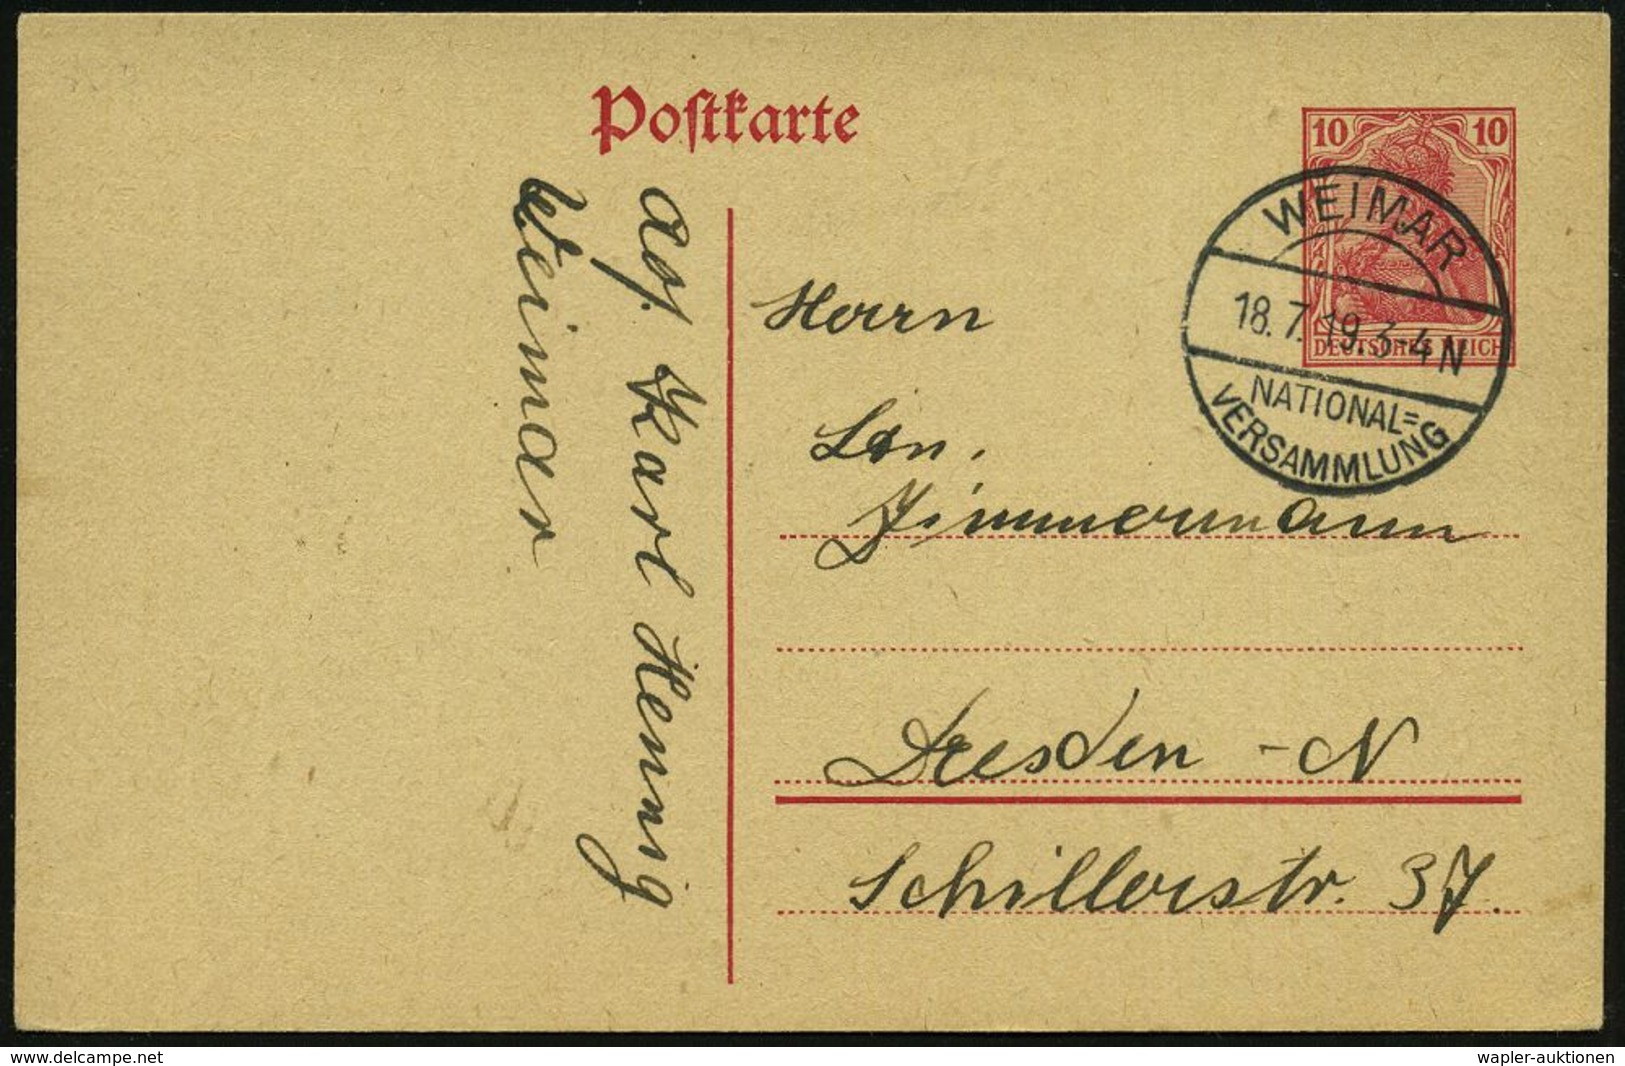 Postkarte
10 10
DEUTSCHES REICH
WEIMAR
18.7.19.3-4 N
NATIONAL=
VERSAMMLUNG
Abs. Karl Hennig
Weimar
Herrn
Zimmermann
Dresden - N
Schillerstr. 37.
www.delcampe.net
wapler-auktionen